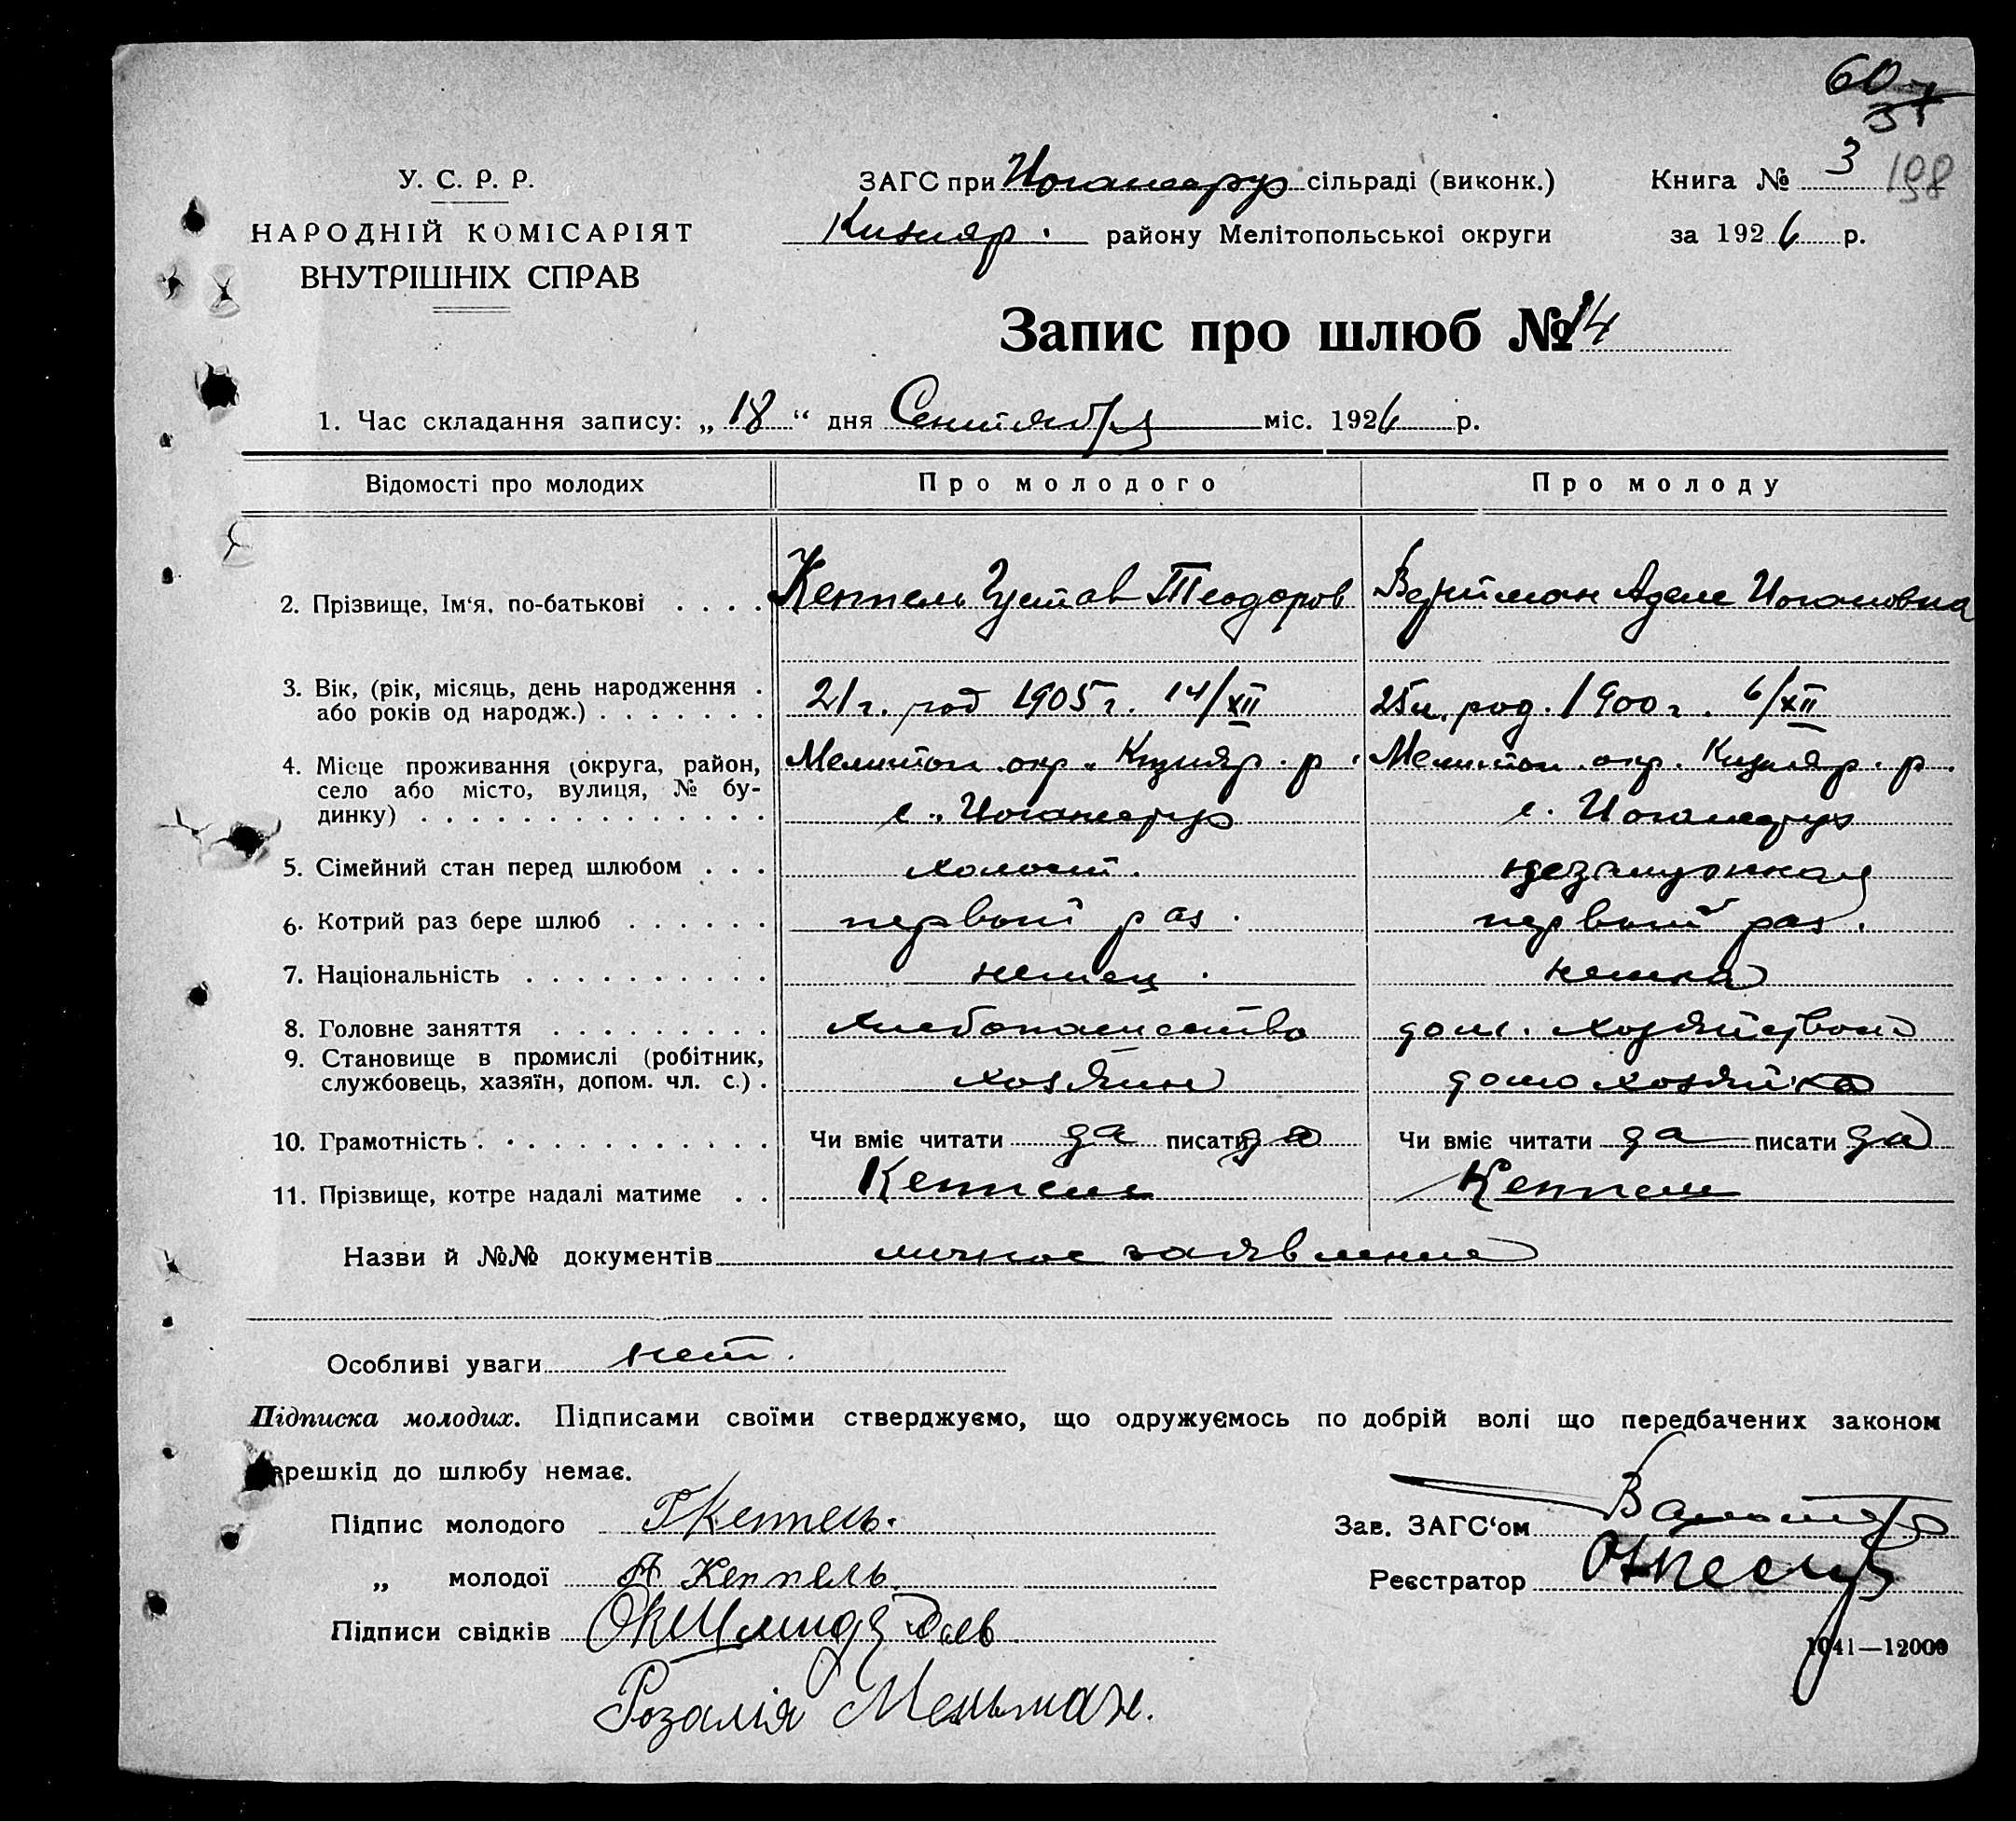 60
198
У. С. Р. Р.
НАРОДНІЙ КОМІСАРІЯТ
ВНУТРІШНІХ СПРАВ
ЗАГС при Иоганнеру сільраді (виконк.)
Книга № 3
Кизияр. району Мелітопольської округи
за 1926 р.
Запис про шлюб № 14
1. Час складання запису: „18“ дня Сентября міс. 1926 р.
Відомості про молодих Про молодого Про молоду
2. Прізвище, Ім‘я, по-батькові . . . . Кеппель Густав Теодоров Адель Иогановна
3. Вік, (рік, місяць, день народження . або років од народж.) . . . . . . . 21 г. род 1905 г. 14/XII 25 л. род. 1900 г. 6/XII
4. Місце проживання (округа, район, Мелитоп. окр. Кизияр. р. Мелитоп. окр. Кизияр. р.
село або місто, вулиця, № бу-
динку) . . . . . . . . . . . . . . с. Иоганнеру с. Иоганнеру
5. Сімейний стан перед шлюбом . . . холост. незамужная
6. Котрий раз бере шлюб . . . . . . первый раз. первый раз.
7. Національність . . . . . . . . . . немец. немка
8. Головне заняття . . . . . . . . . хлебопашество дом. хозяйством
9. Становище в промислі (робітник,
службовець, хазяїн, допом. чл. с.) . хозяин домохозяйка
10. Грамотність . . . . . . . . . . . . Чи вміє читати да писати да Чи вміє читати да писати да
11. Прізвище, котре надалі матиме . . Кеппель Кеппель
Назви й №№ документів личное заявление
Особливі уваги нет.
Підписка молодих. Підписами своїми стверджуємо, що одружуємось по добрій волі що передбачених законом
ерешкід до шлюбу немає.
Підпис молодого Г Кеппель.
Зав. ЗАГС‘ом
„ молодої А Кеппель
Реєстратор
Підписи свідків
1041—12000
Розалія Мельман.